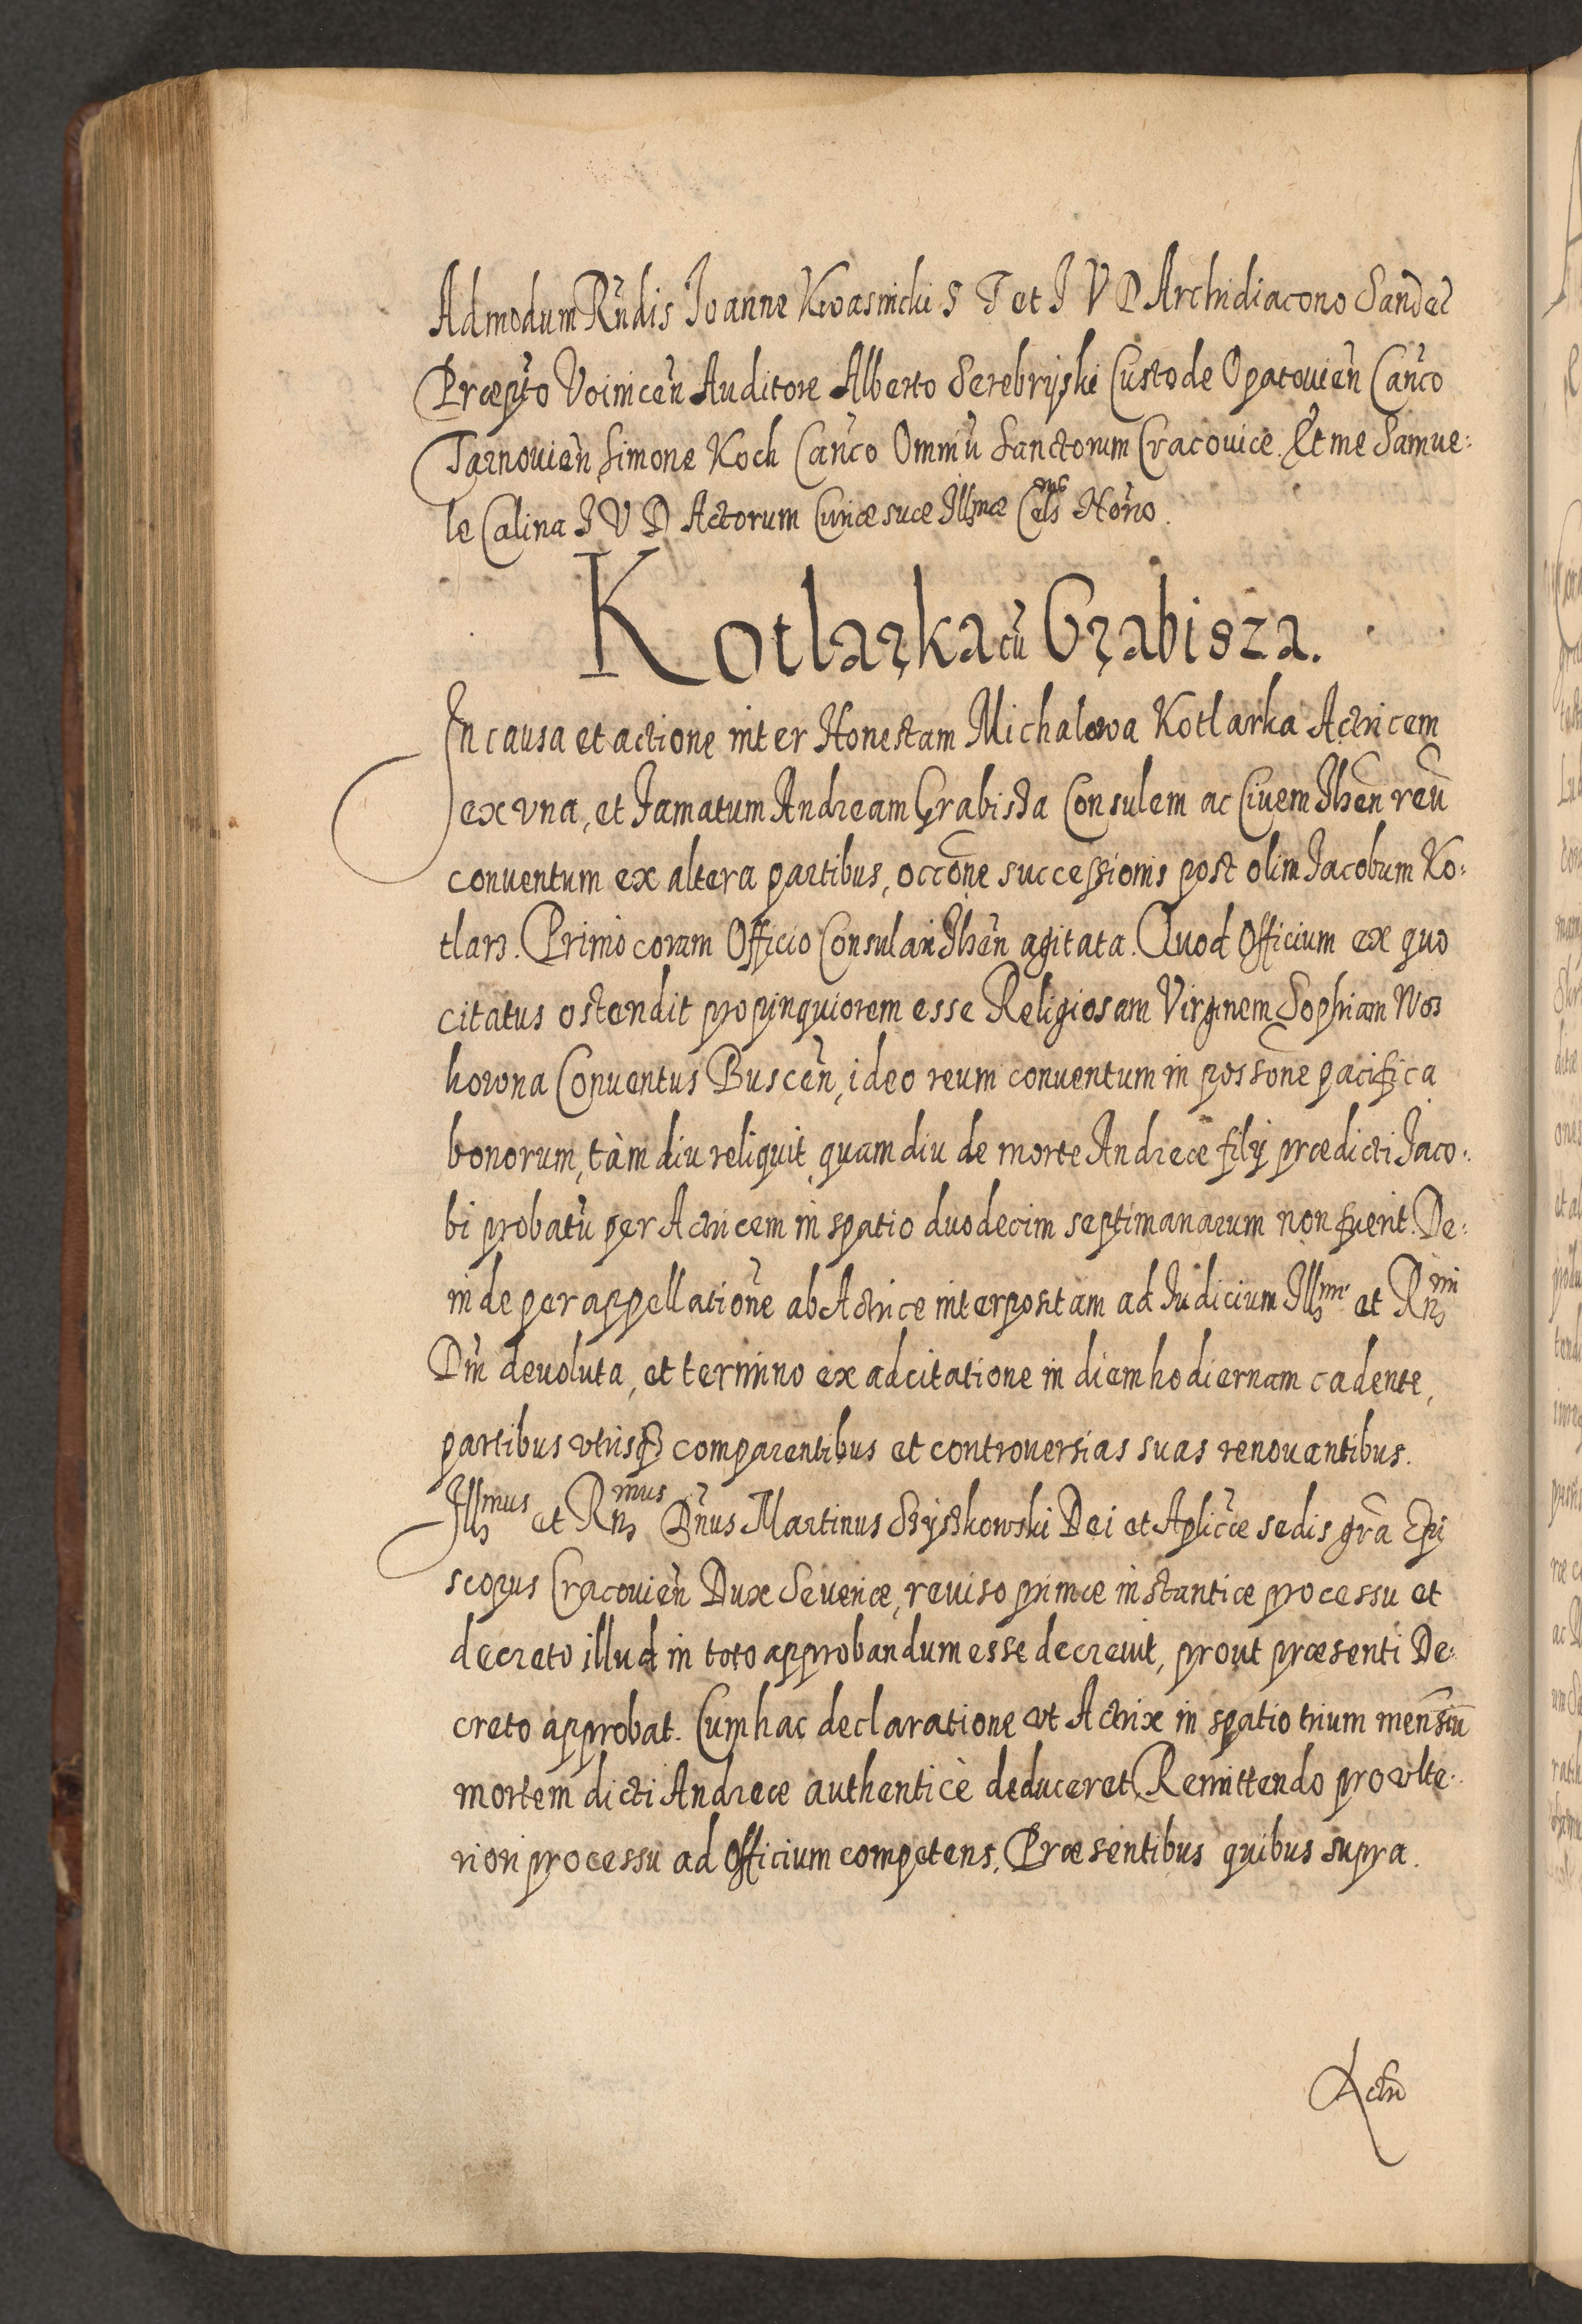 Admodum Rñdis Joanne Kwasnicki S T et J V D Archidiacono Sandec̃
Præpto Voinicen̄ Auditore Alberto Serebryski Custode Opatouien̄ Cañco
Tarnouien̄ Simone Koch Cañco Omniū Sanctorum Cracouiæ. Et me Samue:
le Calina J V D Actorum Curiæ suæ Illmæ Cels Nõrio.
Kotlarka cū Grabisza.
In causa et actione inter Honestam Michalowa Kotlarka Actricem
ex vna, et Famatum Andream Grabisza Consulem ac Ciuem Ilzen̄ reū
conuentum ex altera partibus, occõne successionis post olim Jacobum Ko:
tlarz. Primò coram Officio Consulari Ilzen̄ agitata. Quod Officium ex quo
citatus ostendit propinquiorem esse Religiosam Virginem Sophiam Wos
kowna Conuentus Buscen̄, ideo reum conuentum in possõne pacifica
bonorum, tàm diu reliquit quam diu de morte Andreæ filij prædicti Jaco:
bi probatū per Actricem in spatio duodecim septimanarum non fuerit. De:
inde per appellationē ab Actrice interpositam ad Judicium Illmi et Rmi
Dni deuoluta, et termino ex adcitatione in diem hodiernam cadente,
partibus vtrisq́ comparentibus et controuersias suas renouantibus.
Illmus et Rmus Dñus Martinus Szyszkowski Dei et Aplicæ sedis grã Epi
scopus Cracouien̄ Dux Seueriæ, reuiso primæ instantiæ processu et
decreto illud in toto approbandum esse decreuit, prout præsenti De:
creto approbat. Cum hac declaratione vt Actrix in spatio trium mensiū
mortem dicti Andreæ authenticè deduceret, Remittendo pro vlte:
riori processu ad Officium competens, Præsentibus quibus supra.